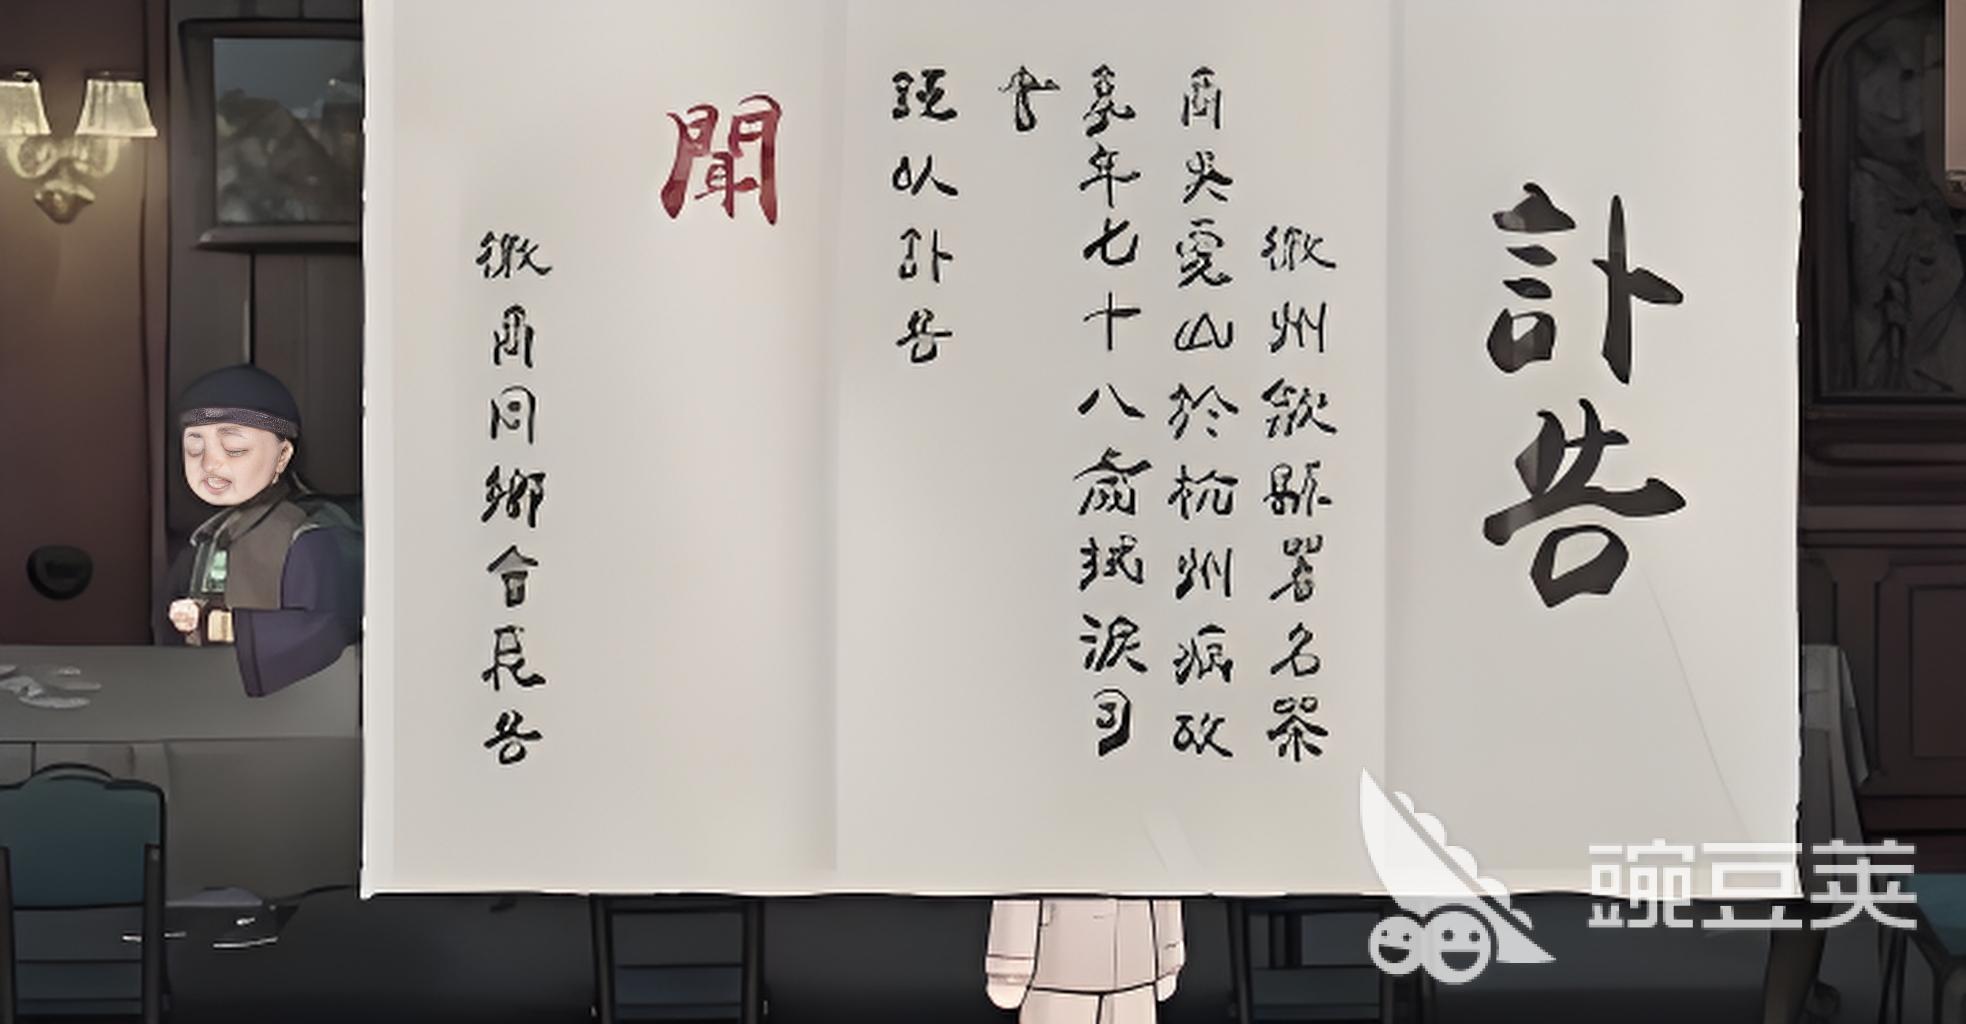 訃告
徽州歙縣著名茶
商吳雲山於杭州病故
享年七十八歲拭淚

訃告
聞
徽商同鄉會民告
豌豆荚